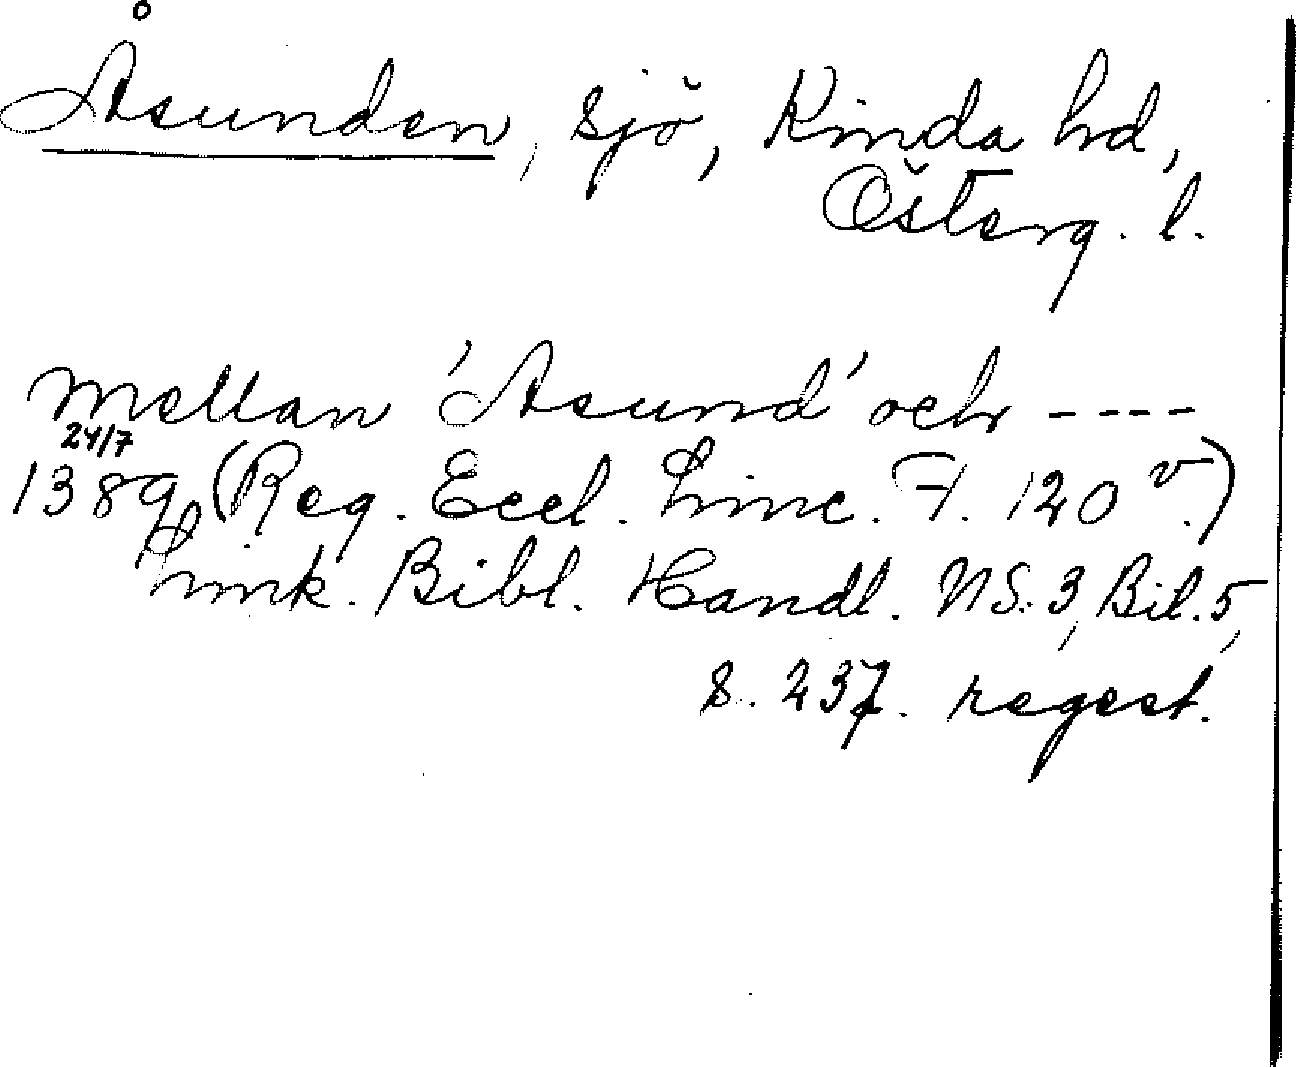 Åsunden, sjö, Kinda hd,
Österg. l.
mellan 'Asund' och ----
24/7
1389 (Reg. Eccl. Linc. F. 120 v.)
Link. Bibl. Handl. NS. 3, Bil. 5,
s. 237. regest.